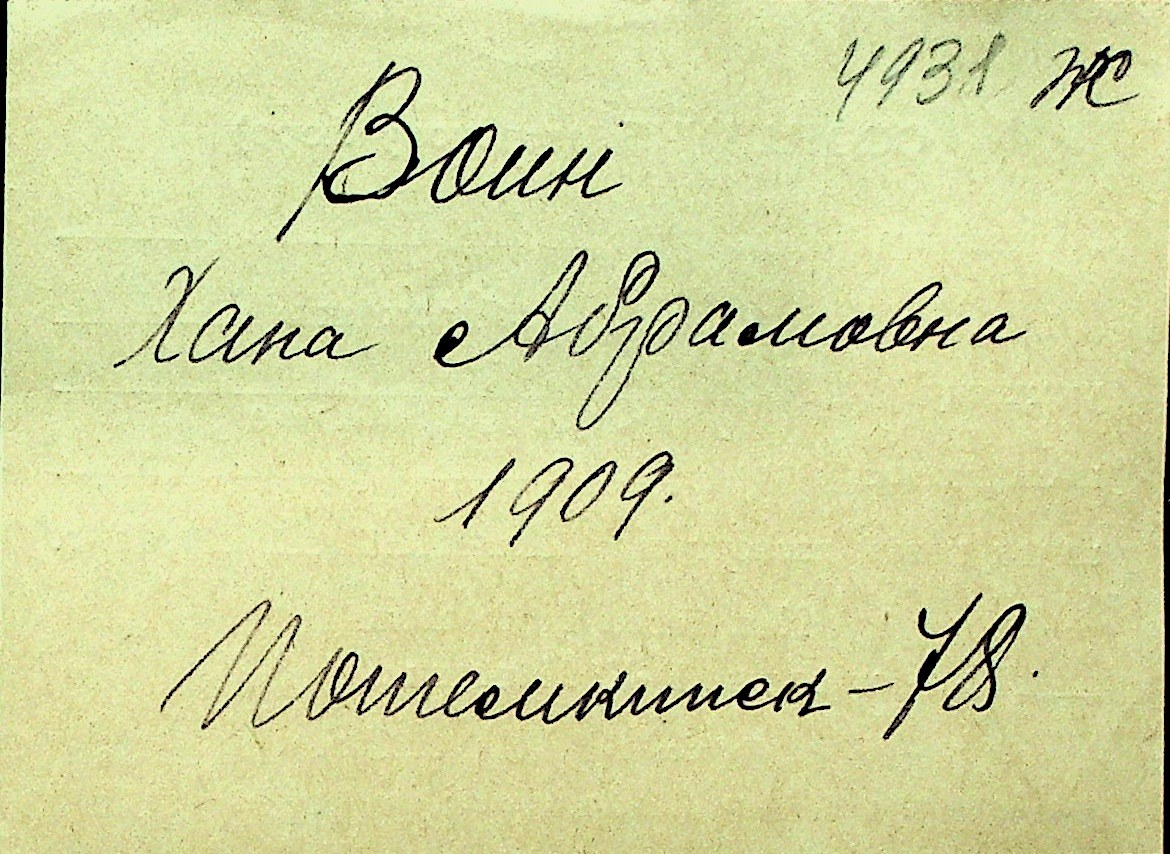 4931 Ж
Воин
Хана Абрамовна
1909.
Потемкинск - 78.